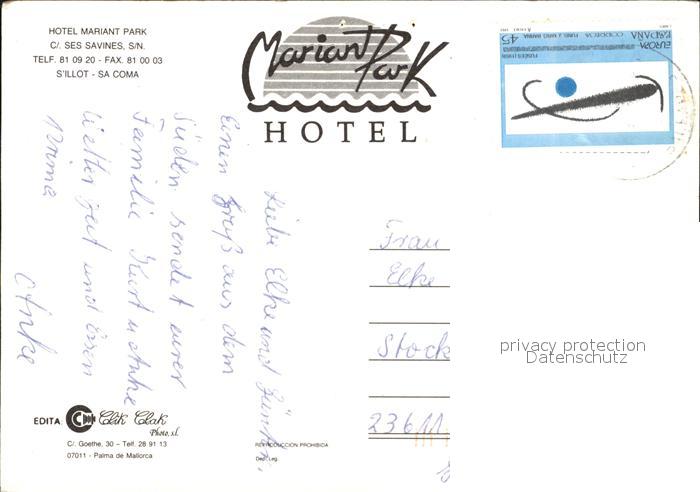 HOTEL MARIANT PARK
C/. SES SAVINES, S/N.
TELF. 81 09 20 - FAX. 81 00 03
S'ILLOT - SA COMA
Mariant Park
HOTEL
45
EUROPA
ESPAÑA
CODECISA
Liebe Elke und Günter,
Einen Gruß aus dem
Süden sendet euch
Familie Kurt u Anke
Wetter gut und Essen
prima
Anke
Frau
Elke
Stock
23611
privacy protection
Datenschutz
EDITA:
Clik Clak
Photo, s.l.
C/. Goethe, 30 - Telf. 28 91 13
07011 - Palma de Mallorca
REPRODUCCION PROHIBIDA
Dep. Leg.